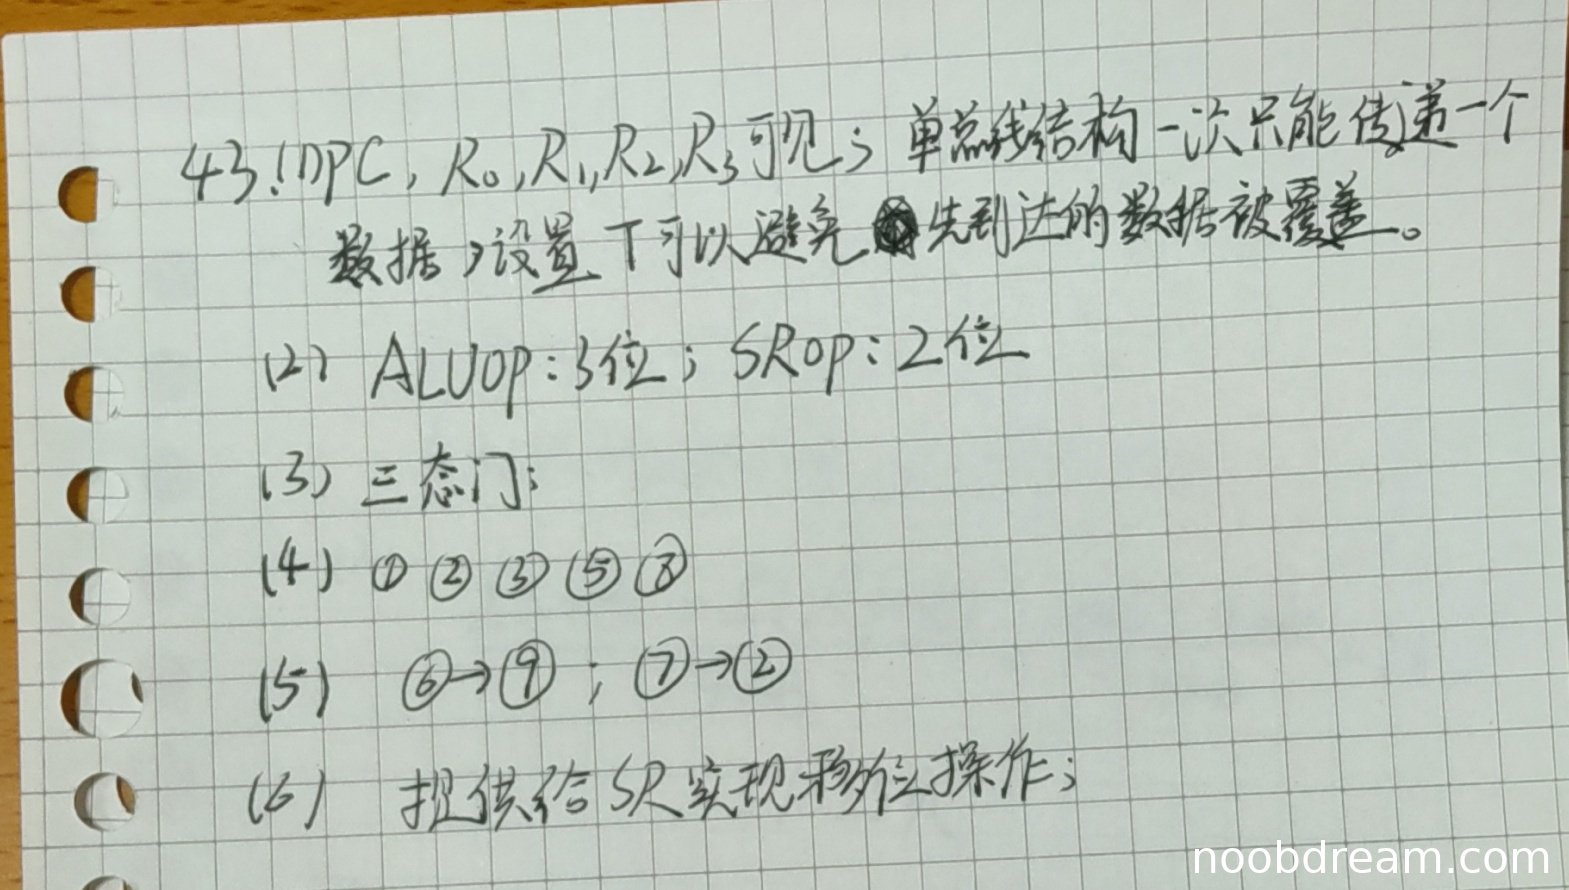 43.(1)PC,R₀,R₁,R₂,R₃可见；单总线结构一次只能传递一个
数据，设置T可以避免先到达的数据被覆盖。
(2) ALUop：3位；SRop：2位
(3) 三态门；
(4) ① ② ③ ⑤ ⑧
(5) ⑥→⑨；⑦→②
(6) 提供给SR实现移位操作；
noobdream.com